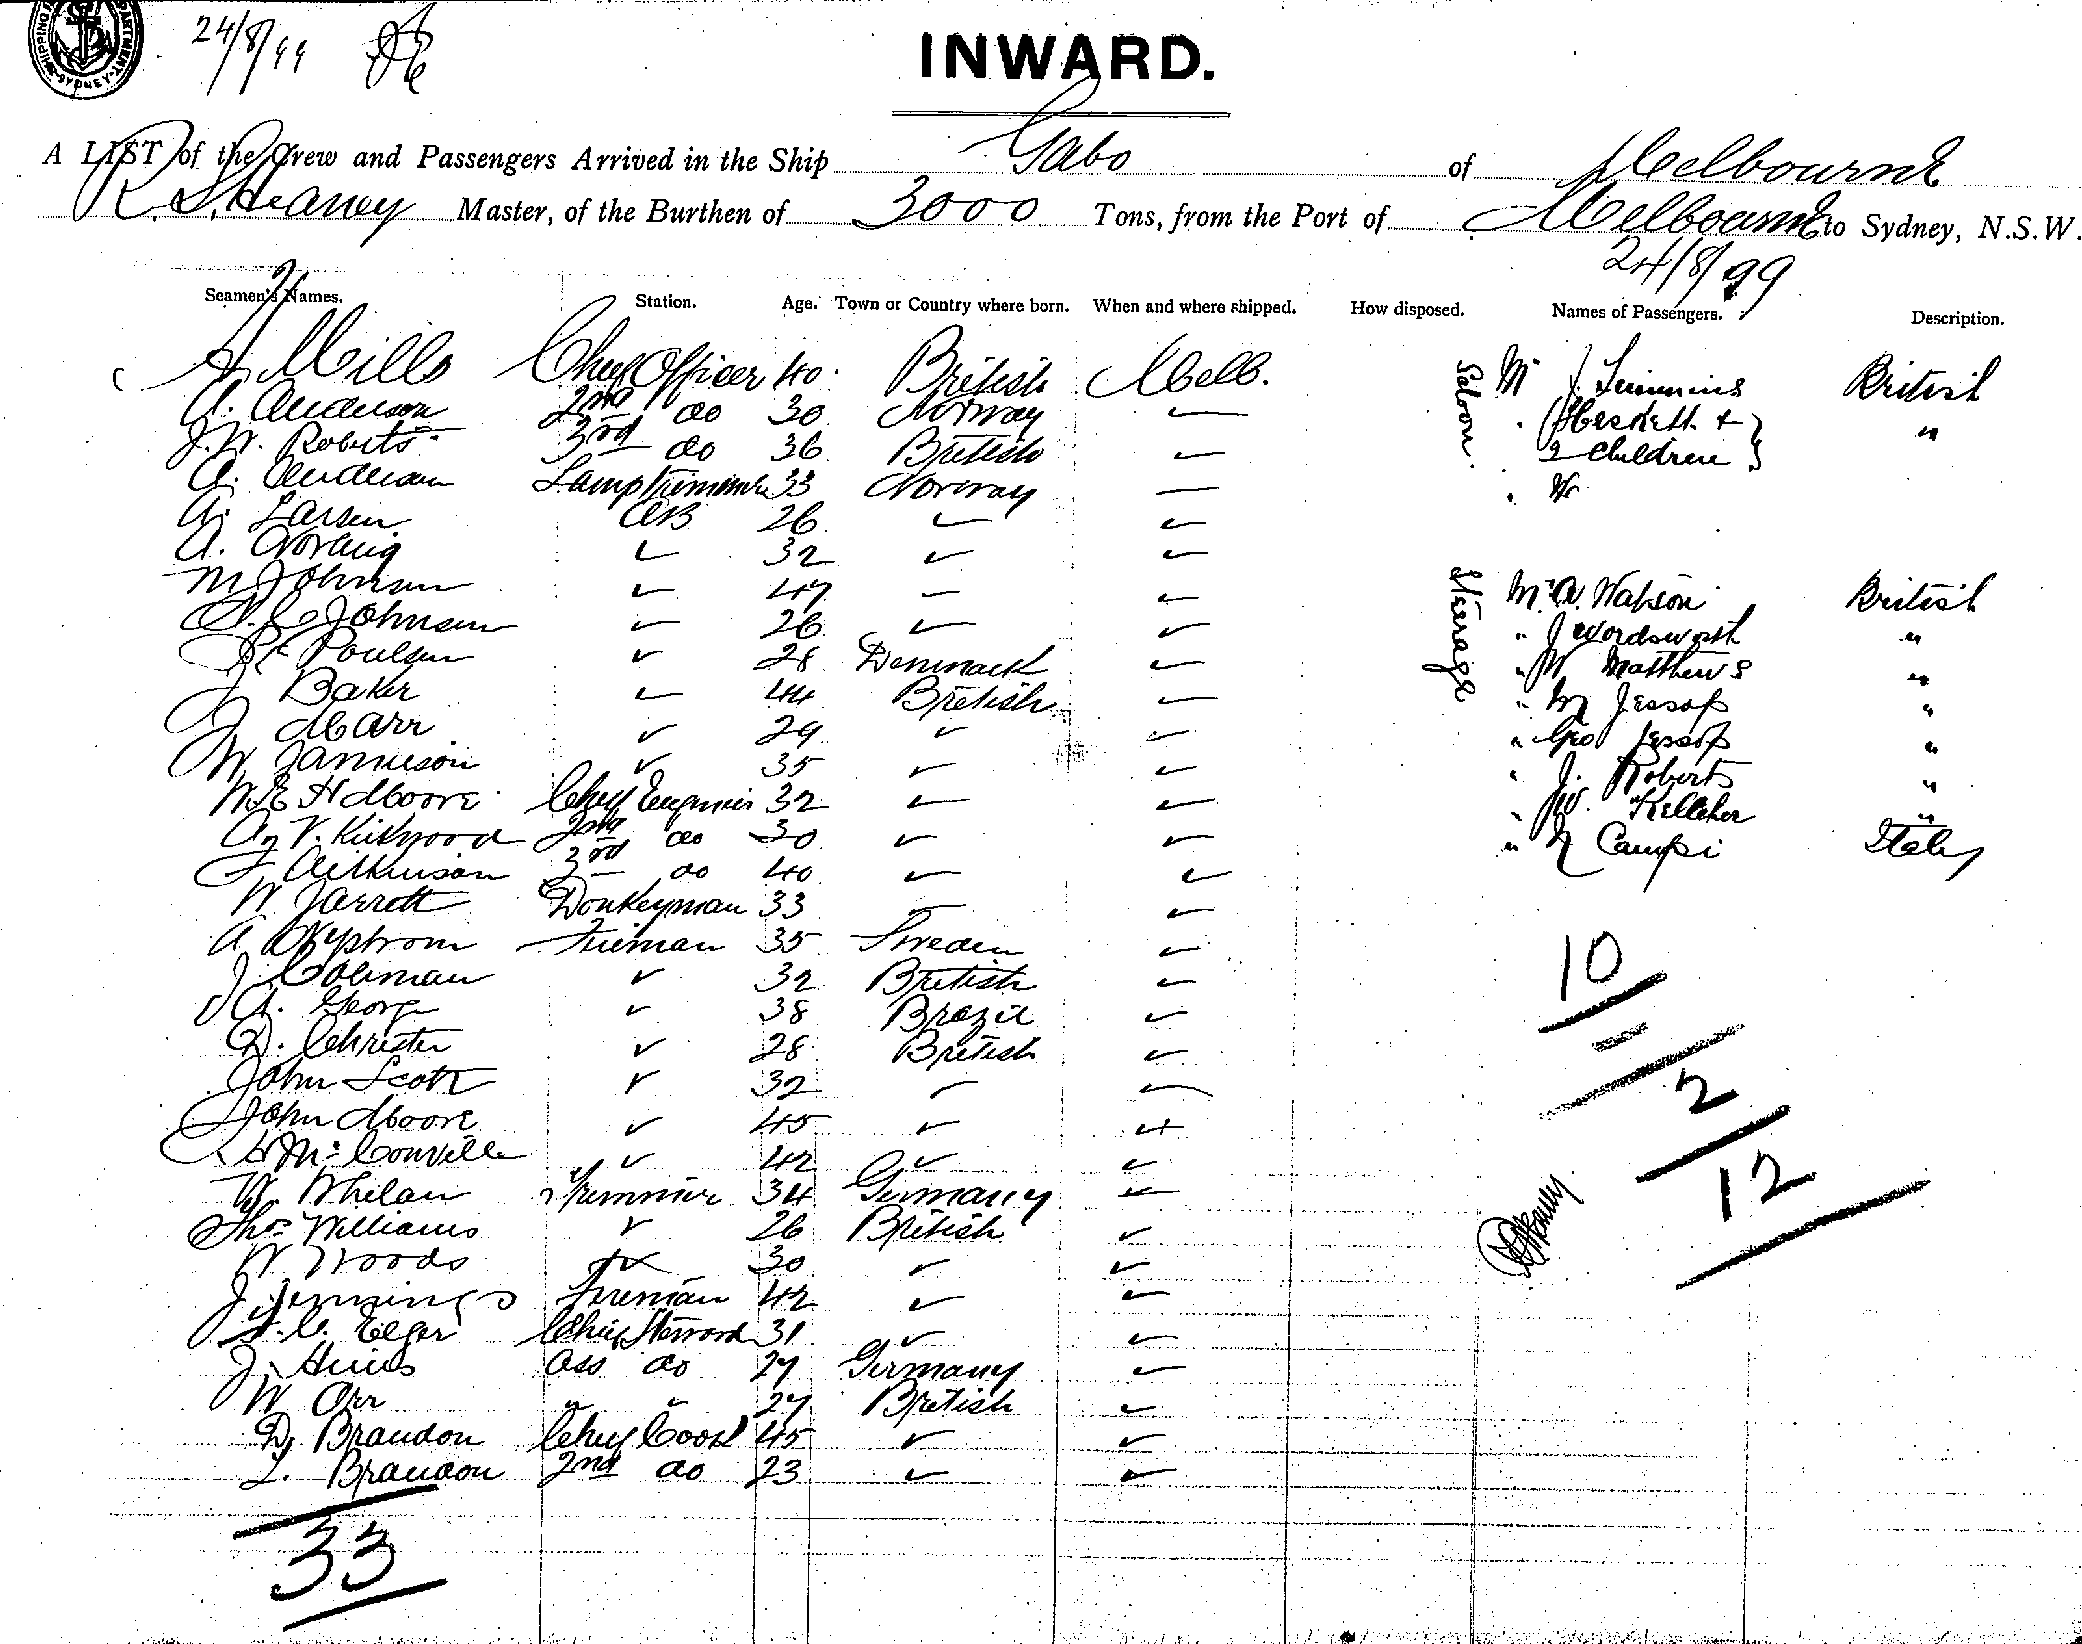 24/8/99
INWARD.
A LIST of the Crew and Passengers Arrived in the Ship Gabo of Melbourne
Master, of the Burthen of 3000 Tons, from the Port of Melbourne to Sydney, N.S.W.
24/8/99
Seamen's Names. Station. Age. Town or Country where born. When and where shipped. How disposed. Names of Passengers. Description.
Mills Chief Officer 40 British Melb.
A. Anderson 2nd do 30 Norway
J. W. Roberts 3rd do 36 British
A. Lamptrimmer 33 Norway
A. Larsen AB 26
A. 32
M Johnson 47
Johnsen 26
Poulsen 28 Denmark
J Baker 44 British
J Marr 29
W Jamieson 35
H Moore Chief Engineer 32
V. Kirkwood 2nd do 30
Aitkinson 3rd do 40
W Jarrett Donkeyman 33
A Nystrom Fireman 35 Sweden
J. Coleman 32 British
A. George 38 Brazil
D. Christer 28 British
John Scott 32
John Moore 45
McConville 42
W. Whelan Trimmer 34 Germany
Thos Williams 26 British
W Woods 30
J Jennings Fireman 42
Elger Chief Steward 31
J. Ass do 27 Germany
W Orr " " 27 British
D. Brandon Chief Cook 45
L. Brandon 2nd do 23
33
Saloon
Mr J. Timmins British
Heskett + "
2 children
Steerage
Mr A. Watson British
" J Wordsworth "
" W Matthews "
" M Jessop "
" Geo Jessop "
" J. Roberts "
" W. Kelleher "
" Campi Italy
10
2
12